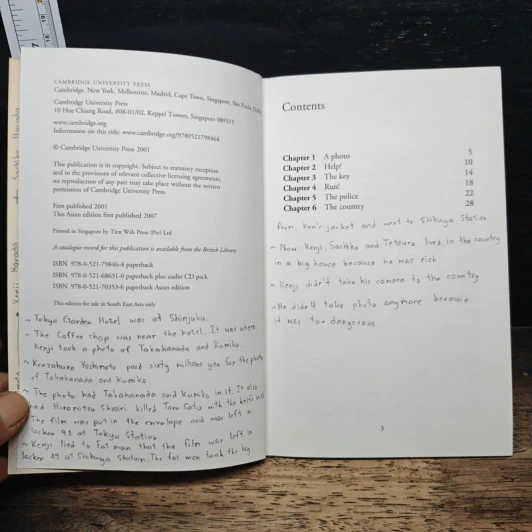 CAMBRIDGE UNIVERSITY PRESS
Cambridge, New York, Melbourne, Madrid, Cape Town, Singapore, São Paulo, Delhi
Cambridge University Press
10 Hoe Chiang Road, #08-01/02, Keppel Towers, Singapore 089315
www.cambridge.org
Information on this title: www.cambridge.org/9780521798464
© Cambridge University Press 2001
This publication is in copyright. Subject to statutory exception
and to the provisions of relevant collective licensing agreements,
no reproduction of any part may take place without the written
permission of Cambridge University Press.
First published 2001
This Asian edition first published 2007
Printed in Singapore by Tien Wah Press (Pte) Ltd
A catalogue record for this publication is available from the British Library
ISBN 978-0-521-79846-4 paperback
ISBN 978-0-521-68631-0 paperback plus audio CD pack
ISBN 978-0-521-70353-6 paperback Asian edition
This edition for sale in South East Asia only
~ Tokyo Garden Hotel was at Shinjuku.
~ The Coffee shop was near the hotel. It was where
Kenji took a photo of Takahanada and Kumiko.
~ Kenzaburo Yoshimoto paid sixty millions yen for the photo
of Takahanada and Kumiko
~ The photo had Takahanada and Kumiko in it. It also
had Hiromitsu killed Toro Sato with the knife
~ The film was put in the envelope and was left in
locker 93 at Tokyo Station
~ Kenji lied to Fat man that the film was left in
locker at Shibuya Station. The fat man took the key
Kenji Harada
Sachiko Harada
Contents
Chapter 1 A photo 5
Chapter 2 Help! 10
Chapter 3 The key 14
Chapter 4 Run! 18
Chapter 5 The police 22
Chapter 6 The country 28
from Ken's jacket and went to Shibuya Station
~ Now Kenji, Sachiko and Tetsura lived in the country
in a big house because he was rich
~ Kenji didn't take his camera to the country
~ He didn't take photo anymore because
it was too dangerous
3